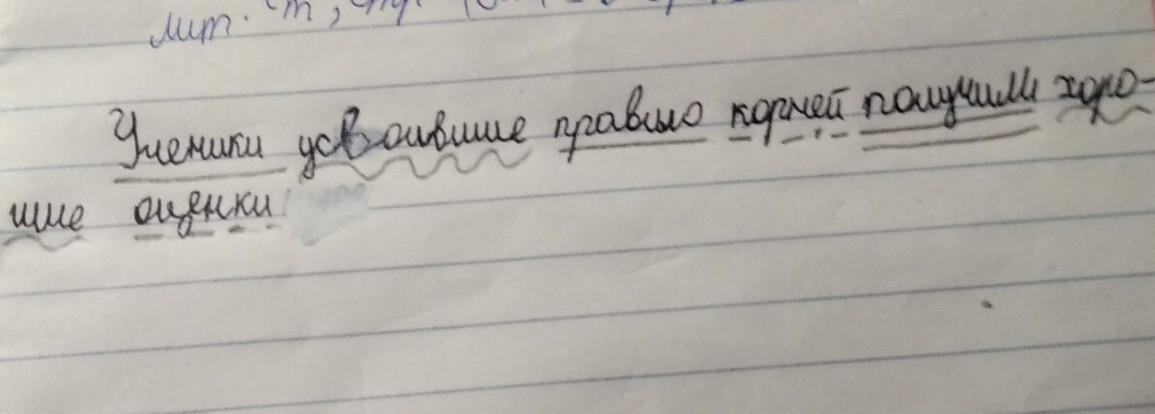 лит.
Ученики усвоившие правило корней получили хоро-
шие оценки